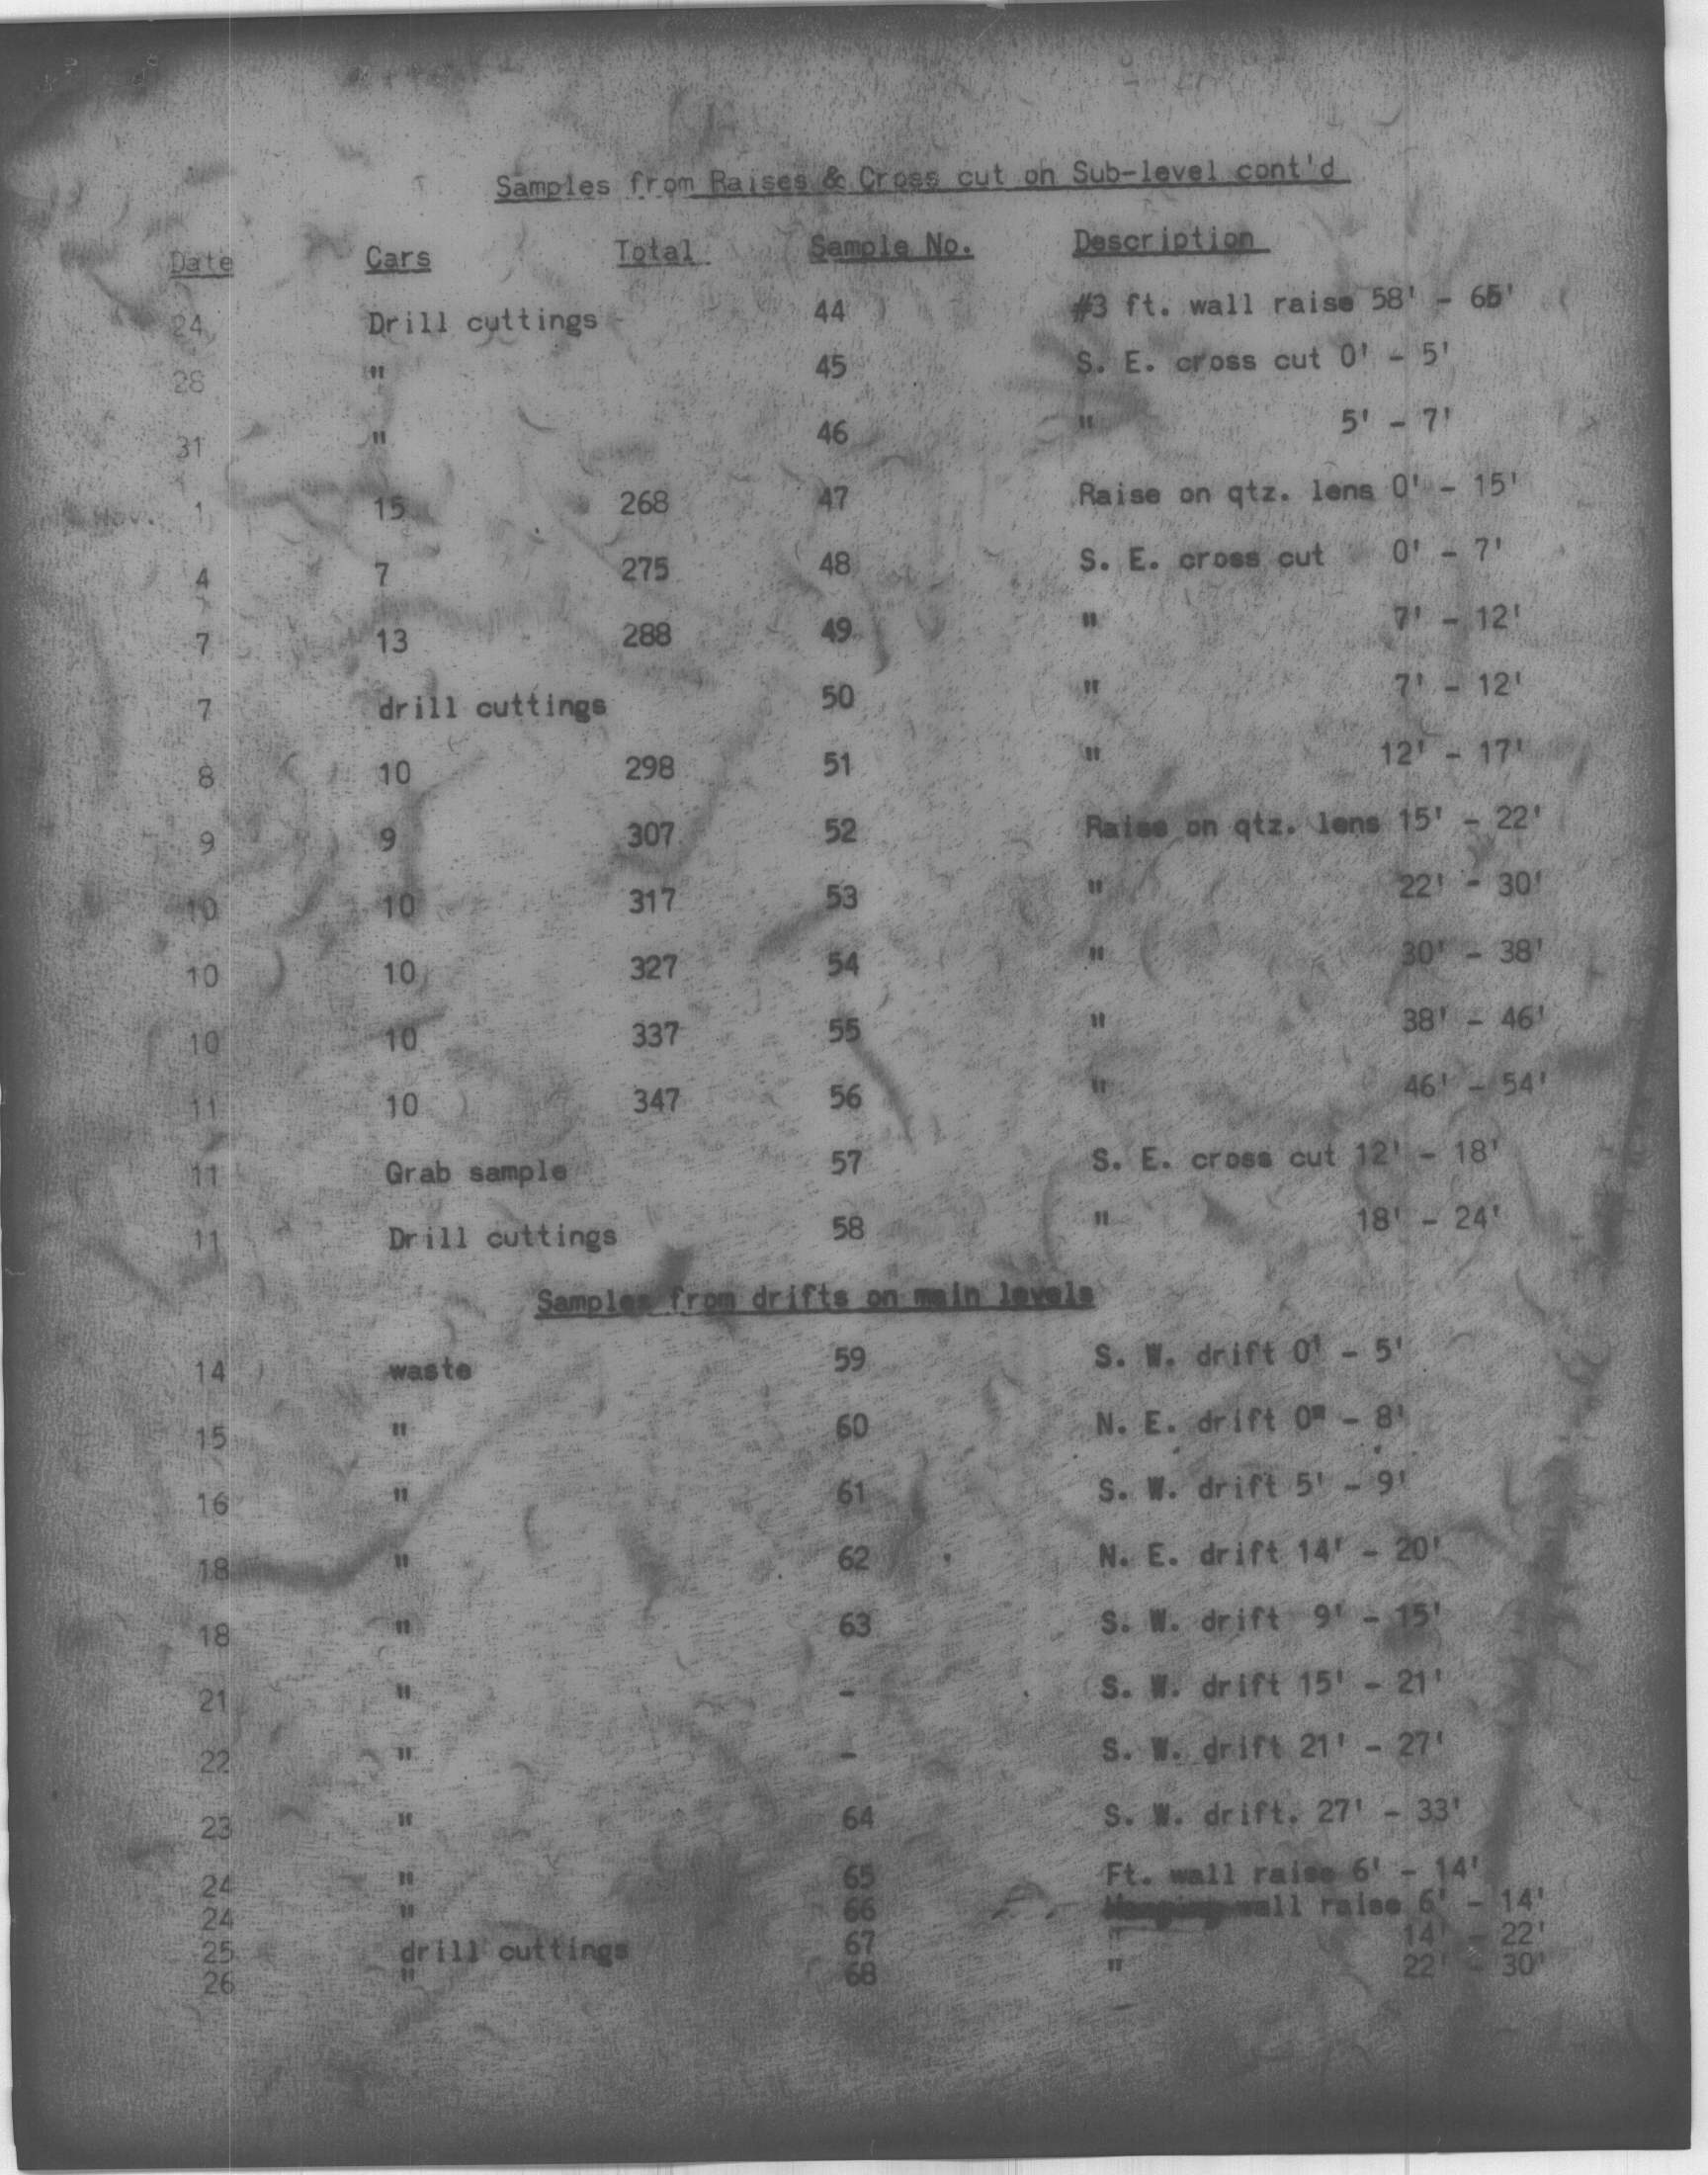 Samples from Raises & Cross cut on Sub-level cont'd
Date Cars Total Sample No. Description
24 Drill cuttings 44 #3 ft. wall raise 58' - 65'
28 " 45 S. E. cross cut 0' - 5'
31 " 46 " 5' - 7'
Nov. 1 15 268 47 Raise on qtz. lens 0' - 15'
4 7 275 48 S. E. cross cut 0' - 7'
7 13 288 49 " 7' - 12'
7 drill cuttings 50 " 7' - 12'
8 10 298 51 " 12' - 17'
9 9 307 52 Raise on qtz. lens 15' - 22'
10 10 317 53 " 22' - 30'
10 10 327 54 " 30' - 38'
10 10 337 55 " 38' - 46'
11 10 347 56 " 46' - 54'
11 Grab sample 57 S. E. cross cut 12' - 18'
11 Drill cuttings 58 " 18' - 24'
Samples from drifts on main levels
14 waste 59 S. W. drift 0' - 5'
15 " 60 N. E. drift 0" - 8'
16 " 61 S. W. drift 5' - 9'
18 " 62 N. E. drift 14' - 20'
18 " 63 S. W. drift 9' - 15'
21 " - S. W. drift 15' - 21'
22 " - S. W. drift 21' - 27'
23 " 64 S. W. drift. 27' - 33'
24 " 65 Ft. wall raise 6' - 14'
24 " 66 Hanging wall raise 6' - 14'
25 drill cuttings 67 " 14' - 22'
26 " 68 " 22' - 30'